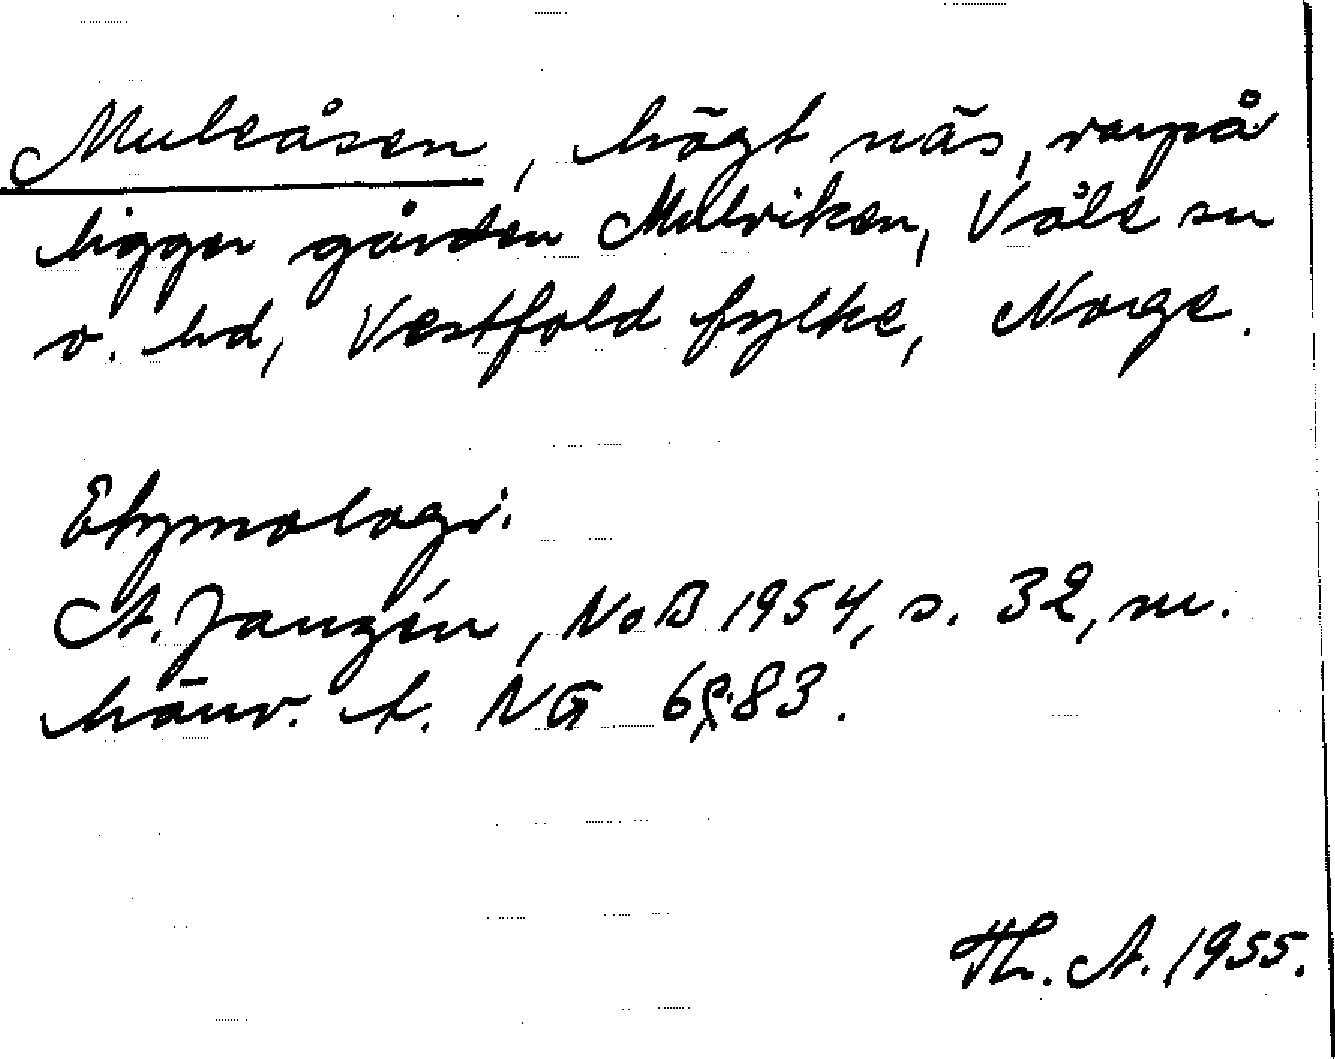 Muleåsen, högt näs, varpå
ligger gården Mulviken, Våle sn
o. hd, Vestfold fylke, Norge.
Etymologi.
A. Janzén, NoB 1954, s. 32, m.
hänv. t. NG 6, 83.
Th. A. 1955.